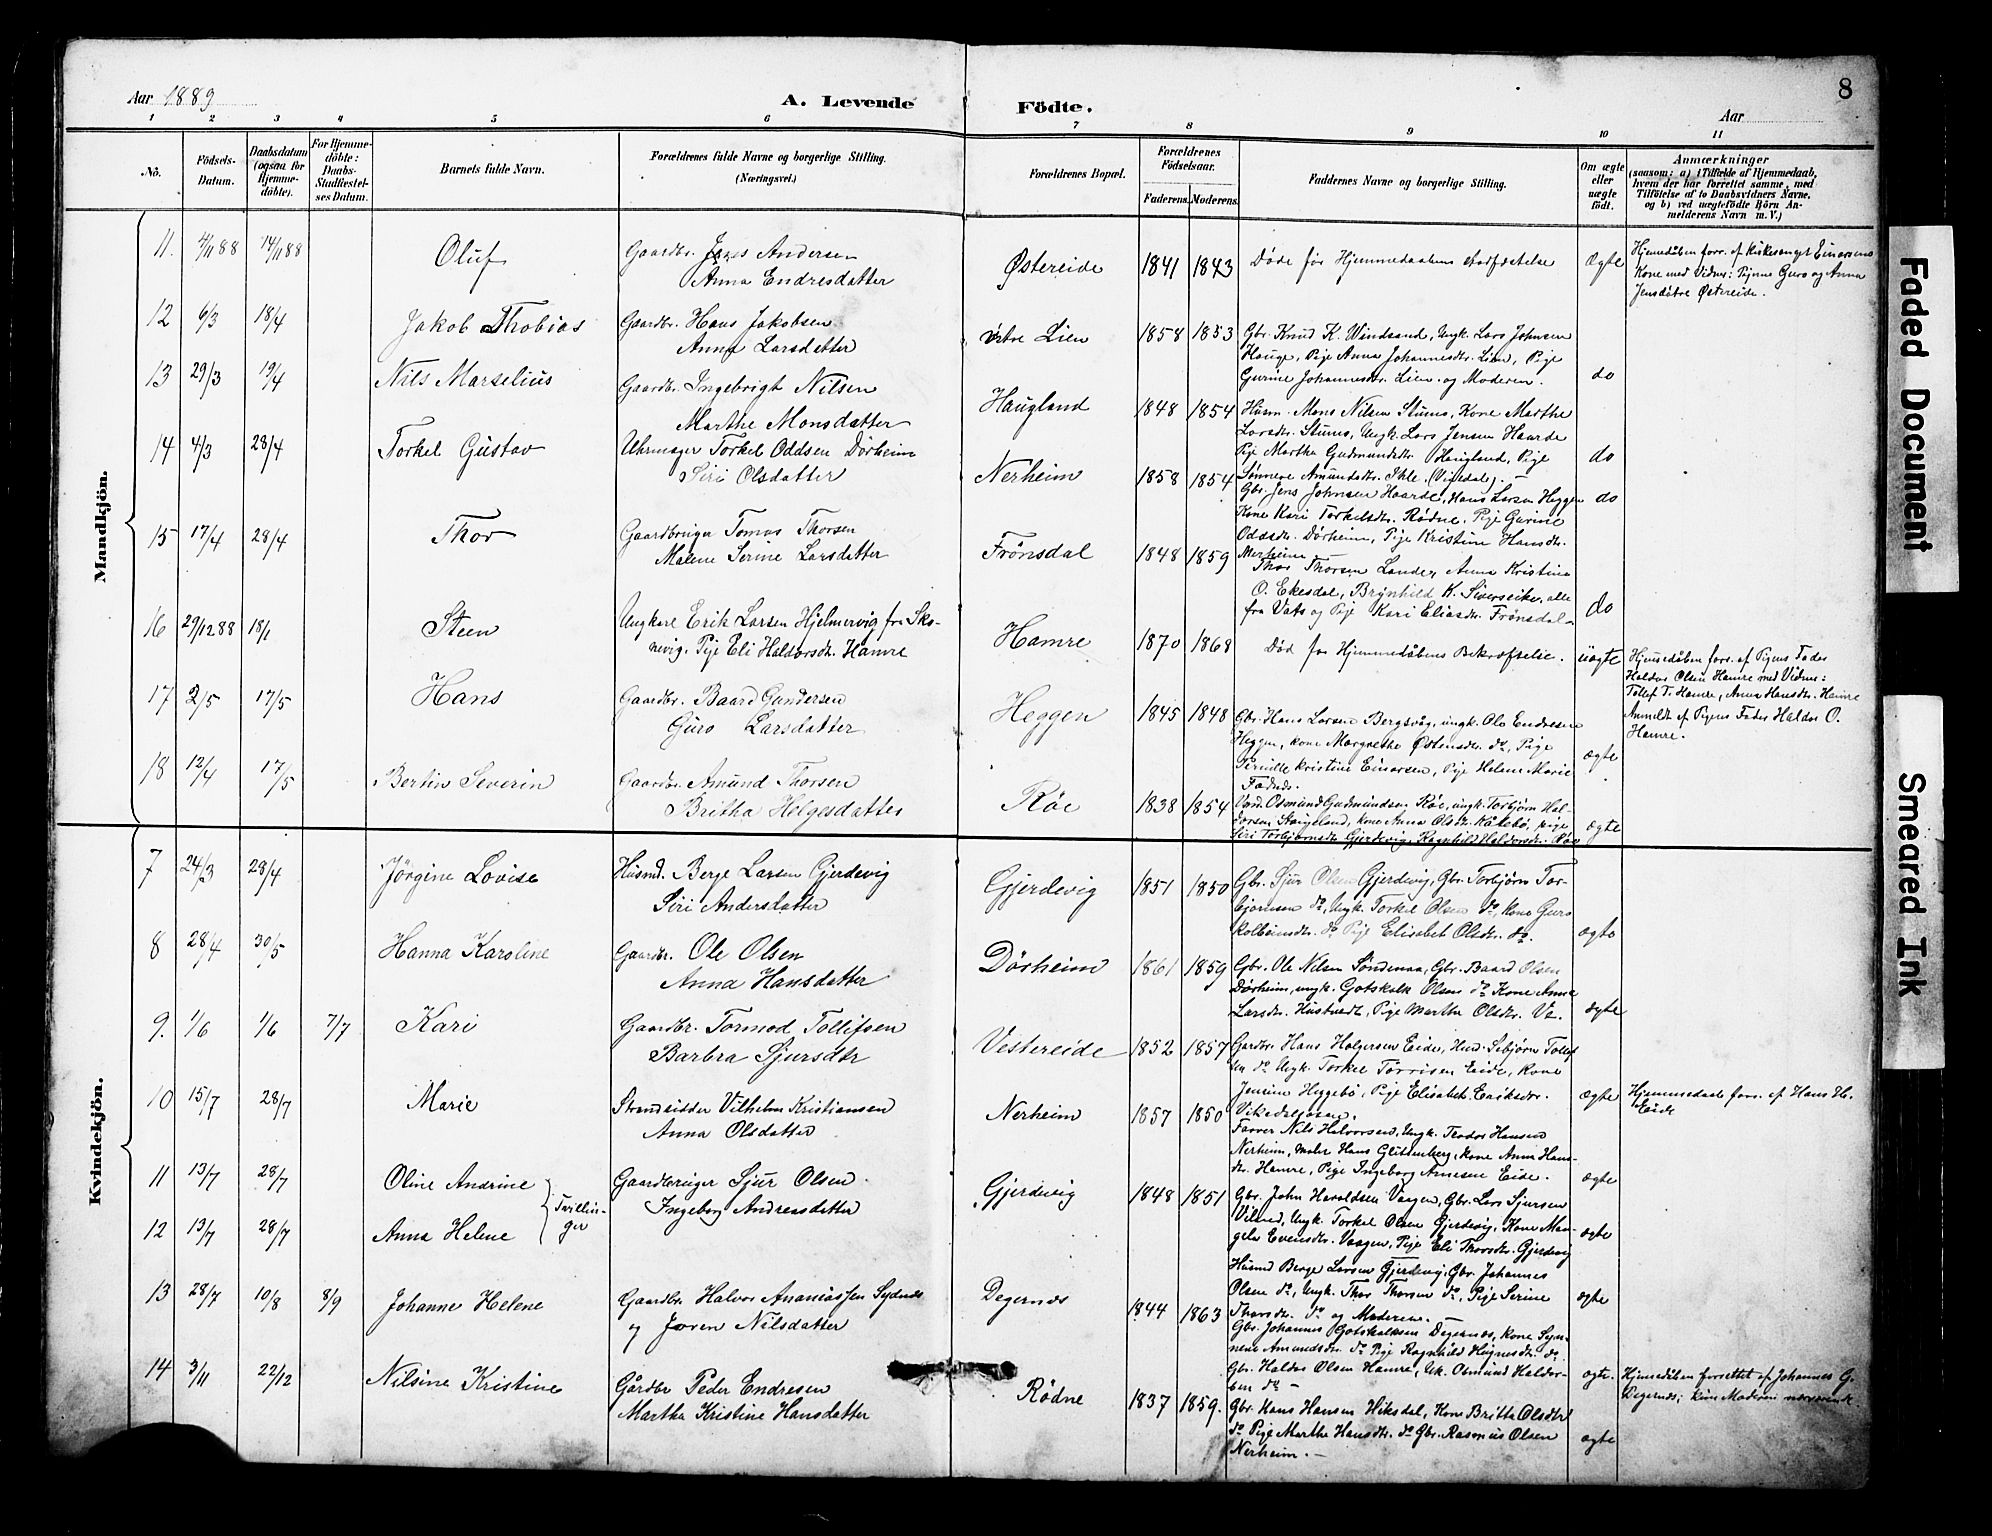 Aar 1889
A. Levende Födte.
Aar
8
1 2 3 4 5 6 7 8 9 10 11
No.
Födsels-Datum.
Daabsdatum (ogsaa for Hjemme-döbte).
For Hjemme-döbte: Daabs-Stadfæstel-ses Datum.
Barnets fulde Navn.
Forældrenes fulde Navne og borgerlige Stilling.
(Næringsvei.)
Forældrenes Bopæl.
Forældrenes Födselsaar.
Faderens. Moderens.
Faddernes Navne og borgerlige Stilling.
Om ægte eller uægte födt.
Anmærkninger
(saasom: a) i Tilfælde af Hjemmedaab,
hvem der har forrettet samme, med
Tilföielse af to Daabsvidners Navne,
og b) ved uægtefödte Börn An-
melderens Navn m. V.)
Mandkjön.
11. 4/11 88 14/11 88 Oluf
Gaardbr. Jens Andersen
Anna Endresdatter
Østereide 1841 1843
Døde før Hjemmedaabens stadfæstelse
Ægte
Hjemedåben forr. af kirkesanger Einarsens
Kone med Vidner: Pigerne Guro og Anna
Jensdøtre Østereide.
12 6/3 18/4 Jakob Thobias
Gaardbr. Hans Jakobsen
Anna Larsdatter
østre Lien 1858 1853
Gbr. Knud K. Windsand, Ungk. Lars Johnsen
Hauge, Pige Anna Johannesdtr. Lien, Pige
Gurine Johannesdtr. Lien og Moderen.
do
13 29/3 19/4 Nils Marselius
Gaardbr. Ingebrigt Nilsen
Marthe Monsdatter
Haugland 1848 1854
Husm. Mons Nilsen Stums, Kone Marthe
Larsdtr. Stums, Ungk. Lars Jensen Haarde
Pige Martha Gudmundsdtr. Haugland, Pige
Sønneve Amundsdtr. Ihle (Vikedal).
do
14 4/3 28/4 Torkel Gustav
Uhrmager Torkel Oddsen Dörheim
Siri Olsdatter
Nerheim 1858 1854
Gbr. Jens Johnsen Haarde, Hans Larsen Heggen
Kone Kari Torkelsdtr. Rødne, Pige Gurine
Odasdtr. Dørheim, Pige Kristine Hansdtr.
Nerheim
do
15 17/4 28/4 Thor
Gaardbruger Tomas Thorsen
Malene Serine Larsdatter
Frönsdal 1848 1859
Thor Thorsen Lande, Anna Kristine
O. Ekesdal, Brynhild K. Siverseike, alle
fra Vats og Pige Kari Eliasdtr. Frønsdal
do
16 29/12 88 18/1 Steen
Ungkarl Erik Larsen Hjelmervig fra Ska-
nevig. Pige Eli Haldorsdtr. Hamre
Hamre 1870 1868
Død før Hjemmedåbens Bekræftelse.
üægte
Hjemedåben forr. af Pigens Fader
Haldor Olsen Hamre med Vidner:
Tollef T. Hamre, Anna Hansdtr. Hamre
Anmeldt af Pigens Fader Haldor O.
Hamre.
17 2/5 17/5 Hans
Gaardbr. Baard Gundersen
Guro Larsdatter
Heggen 1845 1848
Gbr. Hans Larsen Bergsvåg, ungk. Ole Endresen
Heggen, kone Margrethe Østensdtr. do, Pige
Pernille Kristine Einarsen, Pige Helene Marie
Fadnes.
ægte
18 12/4 17/5 Bertin Severin
Gaardbr. Amund Thorsen
Britha Helgesdatter
Röe 1838 1854
Osmund Gudmundsen Røe, ungk. Torbjørn Hal-
dorsen, kone Anna Olsdtr. Kåkebø, pige
Siri Torbjørnsdtr. Gjerdevig, Ragnhild Haldorsdtr. Røe
ægte
Kvindekjön.
7 24/3 28/4 Jörgine Lovise
Husmd. Berge Larsen Gjerdevig
Siri Andersdatter
Gjerdevig 1851 1850
Gbr. Sjur Olsen Gjerdevig, Gbr. Torbjörn Tor-
bjørnsen do, Ungk. Torkel Olsen do, Kone Guro
Kolbeinsdtr. do Pige Elisabet Olsdtr. do.
ægte
8 28/4 30/5 Hanna Karoline
Gaardbr. Ole Olsen
Anna Hansdatter
Dörheim 1861 1859
Gbr. Ole Nilsen Söndenaa, Gbr. Baard Olsen
Dørheim, ungk. Gotskalk Olsen do Kone Anna
Larsdtr. Hustvedt, Pige Martha Olsdtr.
ægte
9. 1/6 1/6 7/7 Kari
Gaardbr. Tormod Tollifsen
Barbra Sjursdtr
Vestereide 1852 1857
Gardbr. Hans Holgersen Eide, Husm. Sebjørn Tollef
sen do Ungk. Torkel Törrisen Eide, Kone
Jensine Heggebö, Pige Elisabet Eriksdtr.
Vikedalsosen.
ægte
Hjemmedaab forr. af Hans H.
Eide
10 15/7 28/7 Marie
Strandsidder Vilhelm Kristiansen
Anna Olsdatter
Nerheim 1857 1850
Farver Nils Halvorsen, Ungk. Teodor Hansen
Nerheim, maler Hans Glittenberg, kone Anna Hans-
dtr. Hamre, Pige Ingeborg Arnesen Eide.
ægte
11 13/7 28/7 Oline Andrine
12 13/7 28/7 Anna Helene
Tvillin-
ger
Gaardbruger Sjur Olsen
Ingeborg Andreasdatter
Gjerdevig 1848 1851
Gbr. John Haraldsen Vaagen, Gbr. Lars Sjursen
Vilsned, Ungk. Torkel Olsen Gjerdevig, Kone Man-
gela Evensdtr. Vaagen, Pige Eli Thorsdtr. Gjerdevig
ægte
Husmd Berge Larsen Gjerdevig, Gbr. Johannes
Olsen do, Ungk. Thor Thorsen do, Pige Serine
Thorsdtr. do og Moderen.
ægte
13 28/7 10/8 8/9 Johanne Helene
Gaardbr. Halvor Ananiassen Sydnes
og Joren Nilsdatter
Degernes 1844 1863
Gbr. Johannes Gotskalksen Degernes, kone Syn-
neve Amundsdtr. do Pige Ragnhild Høgnesdtr. do.
Gbr. Haldor Olsen Hamre, Uk. Osmund Haldor-
sen do
ægte.
Hjemedåben forrettet af Johannes G.
Degernes; kun Moderen nærværende
14 3/11 22/12 Nilsine Kristine
Gårdbr Peder Endresen
Martha Kristine Hansdatter
Rödne 1837 1859.
Gbr. Hans Hansen Hiksdal, Kone Britta Olsdtr
do Pige Marthe Hansdtr. do Gbr. Rasmus Olsen
Nerheim.
ægte
Faded Document
Smeared Ink